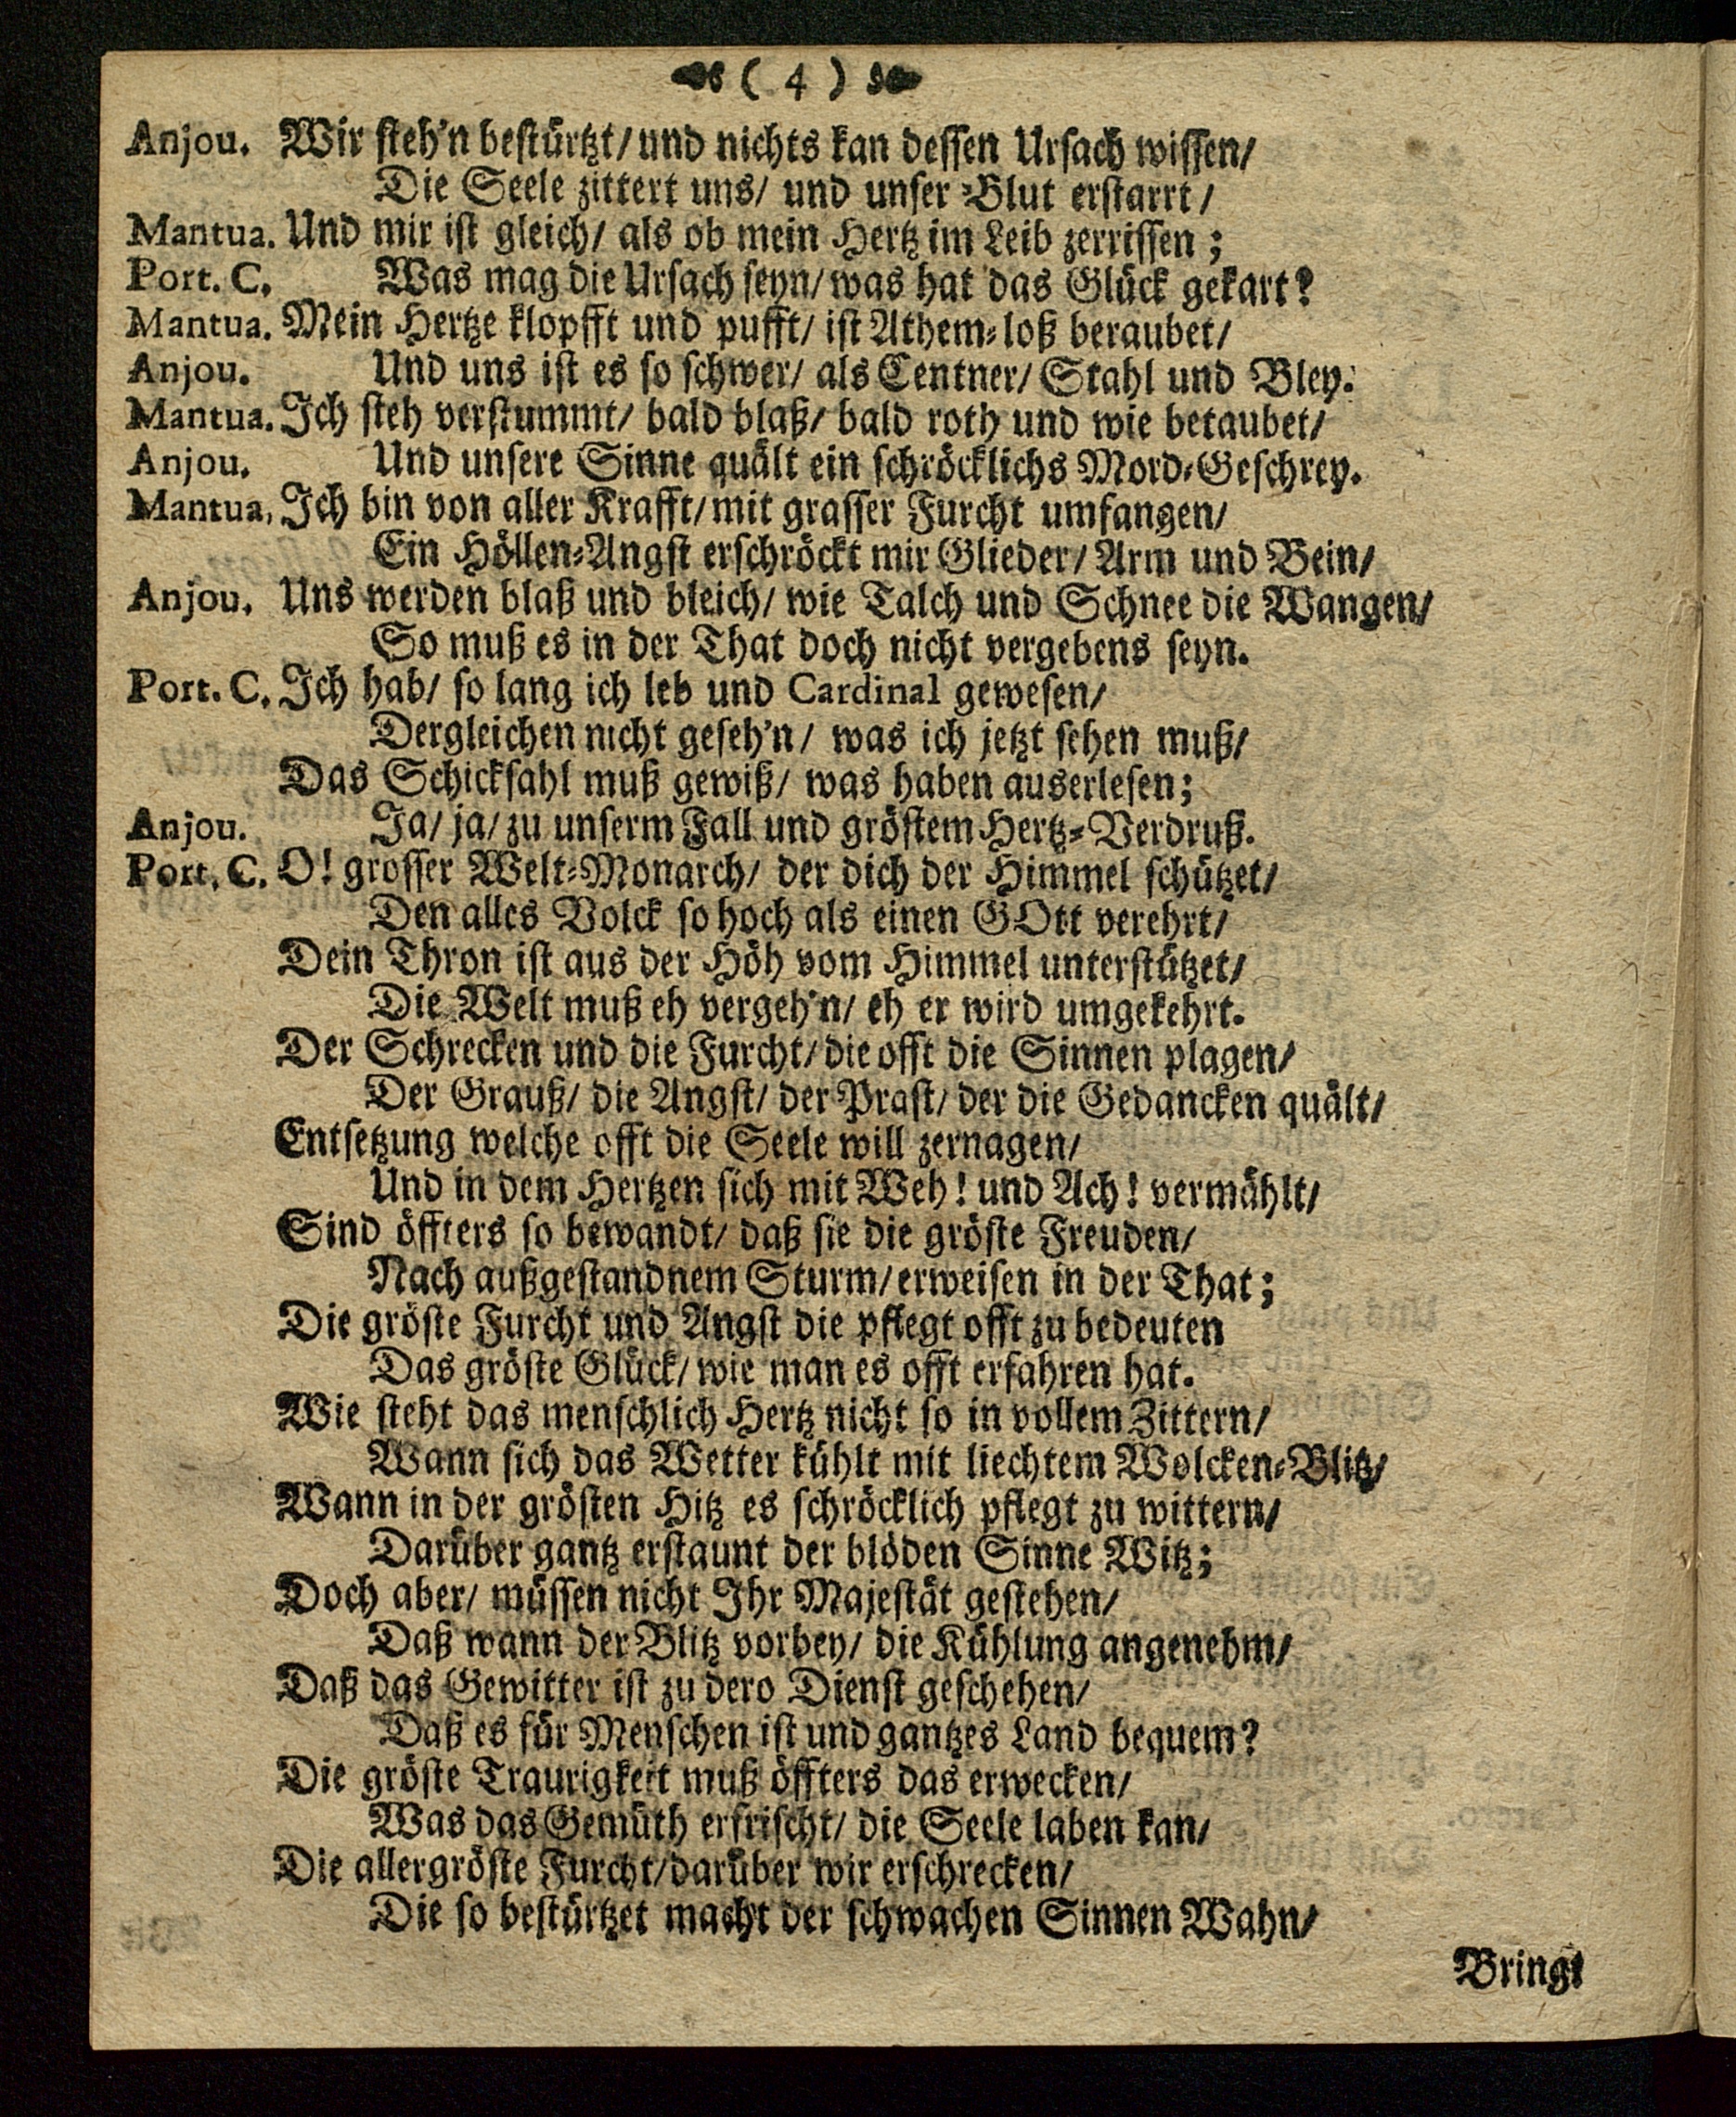 ( 4 )
Anjou. Wir steh'n bestürtzt/ und nichts kan dessen Ursach wissen/
Die Seele zittert uns/ und unser Blut erstarrt/
Mantua. Und mir ist gleich/ als ob mein Hertz im Leib zerrissen;
Port. C. Was mag die Ursach seyn/ was hat das Glück gekart?
Mantua. Mein Hertze klopfft und pufft/ ist Athem-loß beraubet/
Anjou. Und uns ist es so schwer/ als Centner/ Stahl und Bley.
Mantua. Ich steh verstummt/ bald blaß/ bald roth und wie betaubet/
Anjou. Und unsere Sinne quält ein schröcklichs Mord-Geschrey.
Mantua. Ich bin von aller Krafft/ mit grasser Furcht umfangen/
Ein Höllen-Angst erschröckt mir Glieder/ Arm und Bein/
Anjou. Uns werden blaß und bleich/ wie Talch und Schnee die Wangen/
So muß es in der That doch nicht vergebens seyn.
Port. C. Ich hab/ so lang ich leb und Cardinal gewesen/
Dergleichen nicht geseh'n/ was ich jetzt sehen muß/
Das Schicksahl muß gewiß/ was haben auserlesen;
Anjou. Ja/ ja/ zu unserm Fall und gröstem Hertz-Verdruß.
Port. C. O! grosser Welt-Monarch/ der dich der Himmel schützet/
Den alles Volck so hoch als einen GOtt verehrt/
Dein Thron ist aus der Höh vom Himmel unterstützet/
Die Welt muß eh vergeh'n/ eh er wird umgekehrt.
Der Schrecken und die Furcht/ die offt die Sinnen plagen/
Der Grauß/ die Angst/ der Prast/ der die Gedancken quält/
Entsetzung welche offt die Seele will zernagen/
Und in dem Hertzen sich mit Weh! und Ach! vermählt/
Sind öffters so bewandt/ daß sie die gröste Freuden/
Nach außgestandnem Sturm/ erweisen in der That;
Die gröste Furcht und Angst die pflegt offt zu bedeuten
Das gröste Glück/ wie man es offt erfahren hat.
Wie steht das menschlich Hertz nicht so in vollem Zittern/
Wann sich das Wetter kühlt mit liechtem Wolcken-Blitz/
Wann in der grösten Hitz es schröcklich pflegt zu wittern/
Darüber gantz erstaunt der blöden Sinne Witz;
Doch aber/ müssen nicht Ihr Majestät gestehen/
Daß wann der Blitz vorbey/ die Kühlung angenehm/
Daß das Gewitter ist zu dero Dienst geschehen/
Daß es für Menschen ist und gantzes Land bequem?
Die gröste Traurigkeit muß öffters das erwecken/
Was das Gemüth erfrischt/ die Seele laben kan/
Die allergröste Furcht/ darüber wir erschrecken/
Die so bestürtzet macht der schwachen Sinnen Wahn/
Bringt